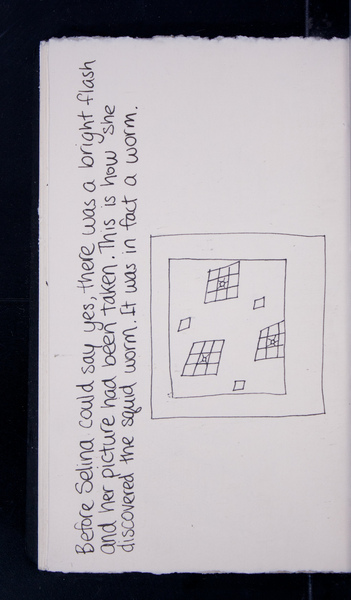 Before Selina could say yes, there was a bright flash
and her picture had been taken. This is how she
discovered the squid worm. It was in fact a worm.